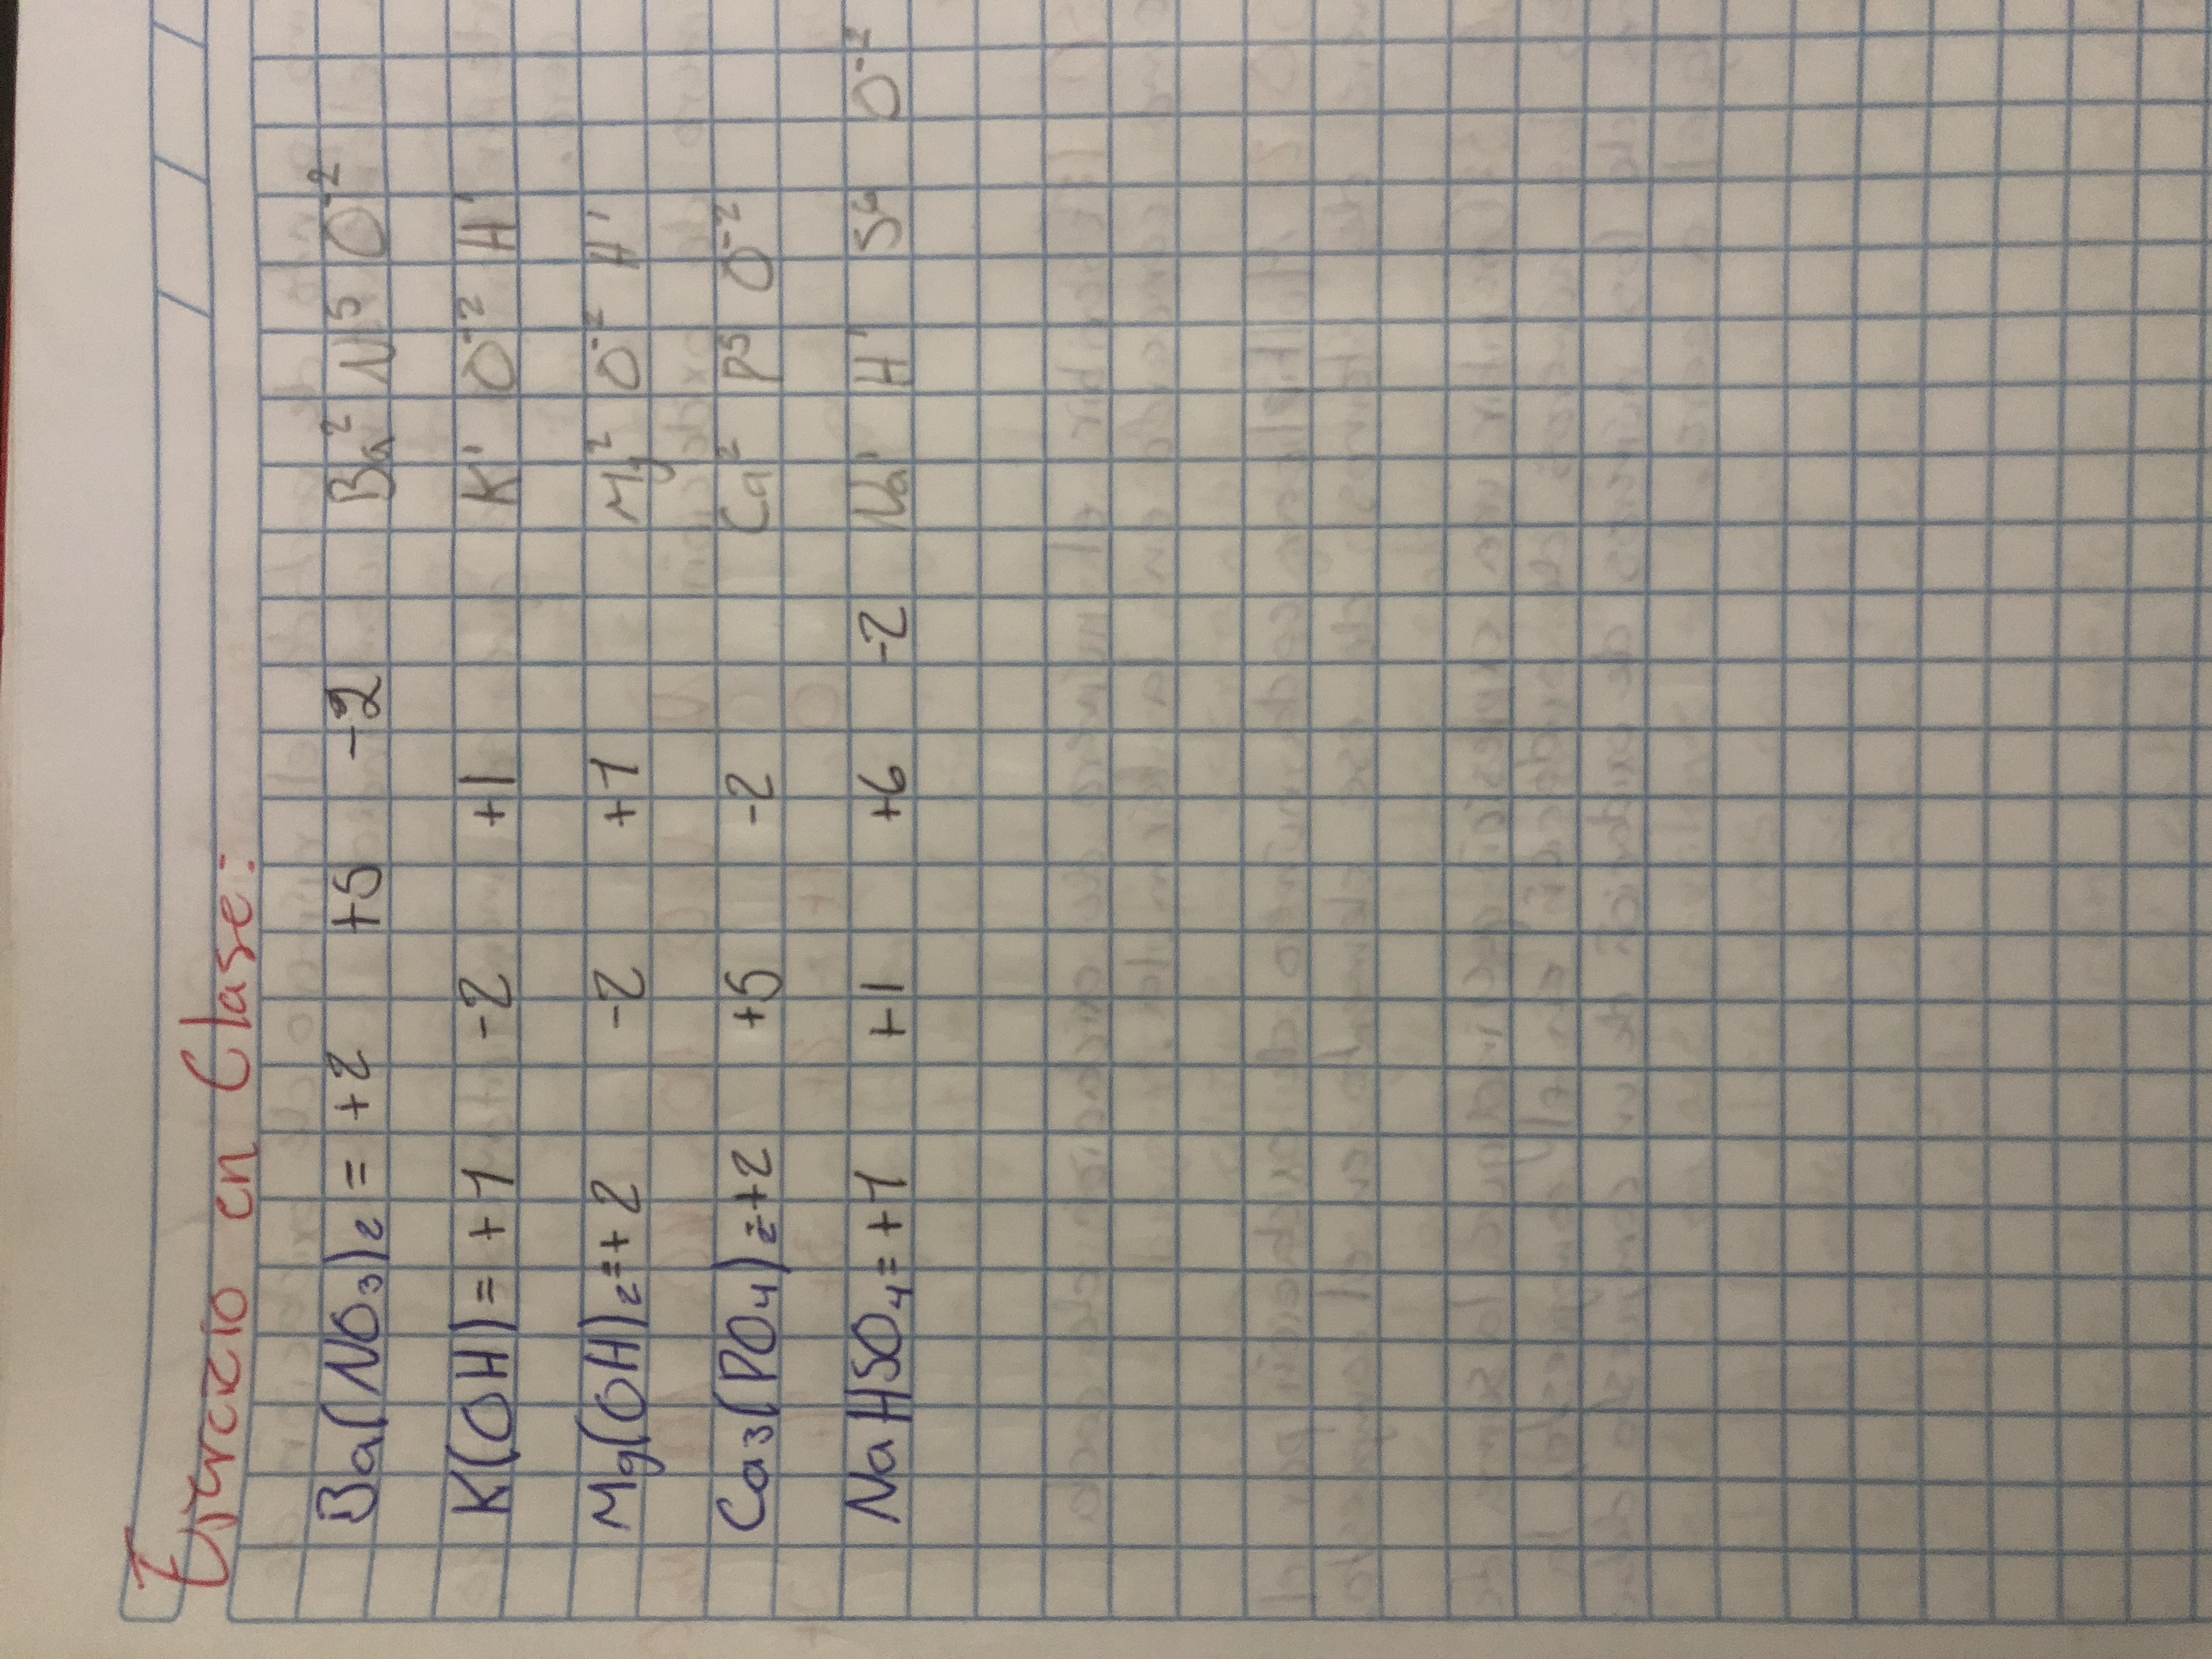 Ejercizio en Clase:
Ba(NO₃)₂ = +2 +5 -2 Ba² N⁵ O⁻²
K(OH) = +1 -2 +1 K¹ O⁻² H¹
Mg(OH)₂ = +2 -2 +1 Mg² O⁻² H¹
Ca₃(PO₄)₂ = +2 +5 -2 Ca² P⁵ O⁻²
NaHSO₄ = +1 +1 +6 -2 Na¹ H¹ S⁶ O⁻²